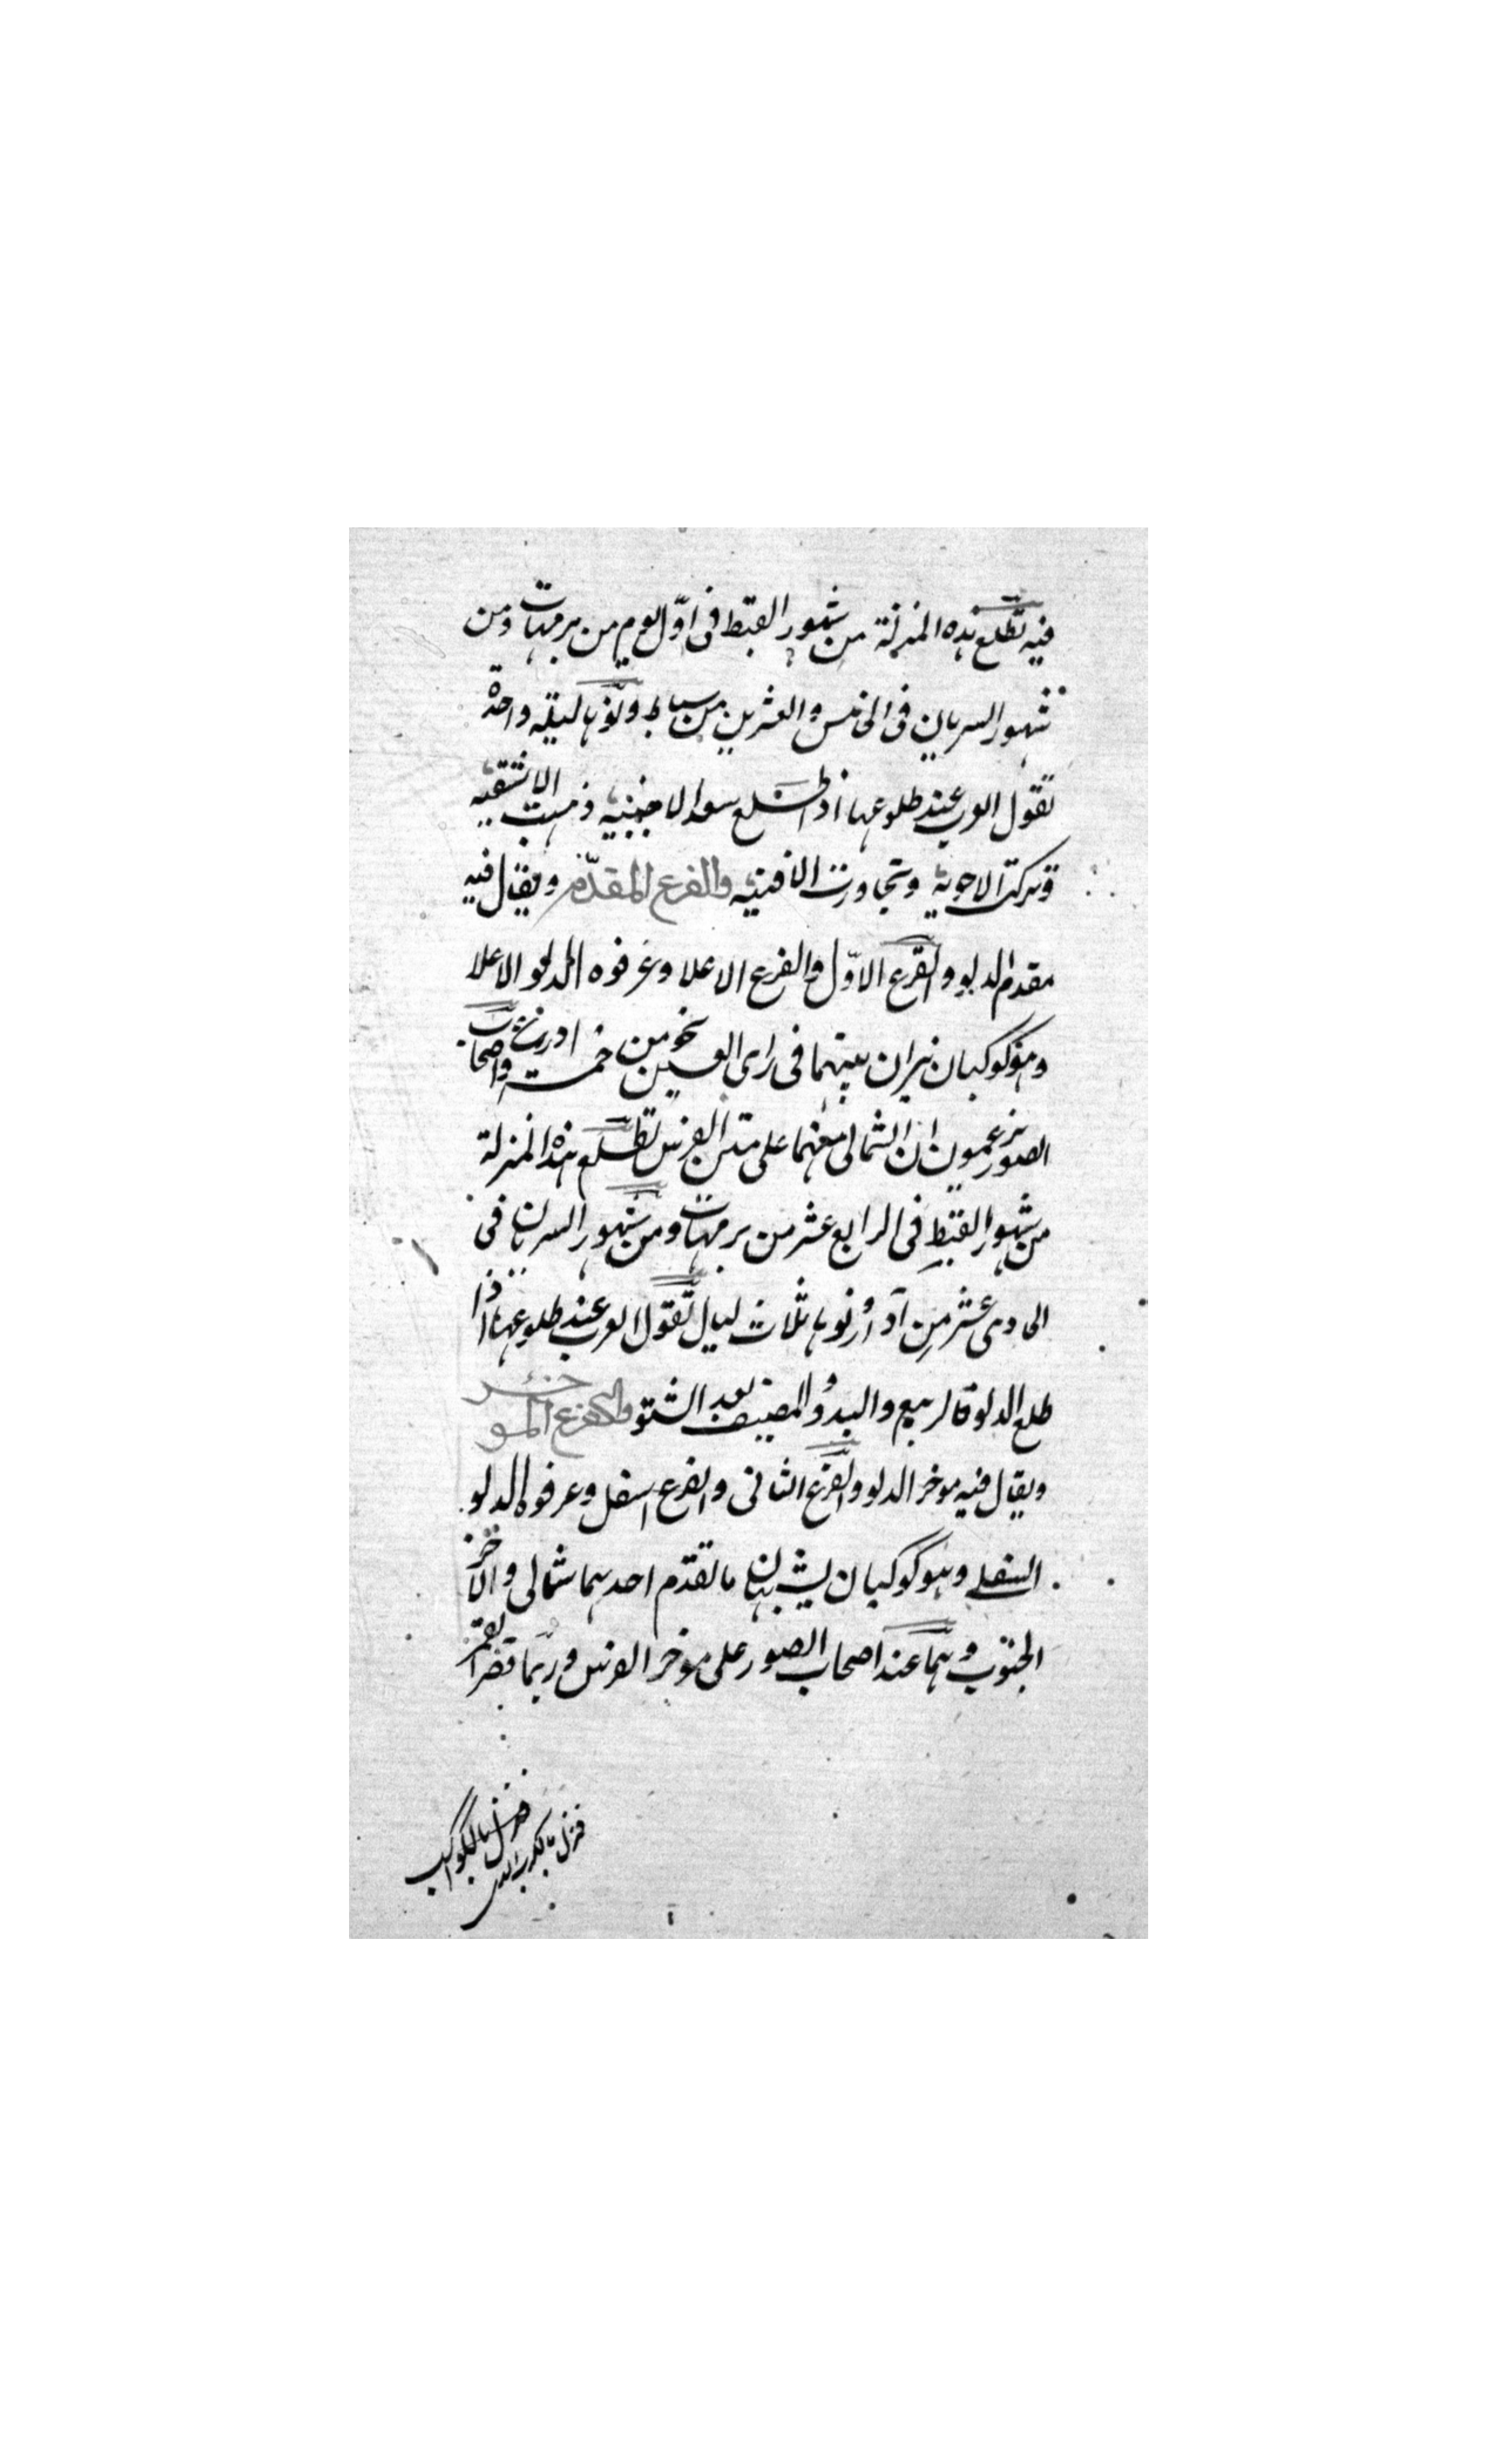 فيه تطلع هذه المنزلة من شهور القبط فى اوّل يوم من برمهات ومن
شهور السريان فى الخامس والعشرين من سباط ونوها ليلة واحدة
تقول العرب عند طلوعها اذا طلع سعد الاخبية ذهبت الاشقية
وتركت الاحوية وتجاورت الافنية والفرع المقدّم ويقال فيه
مقدم الدلو والفرع الاوّل والفرع الاعلا وعرفوه الدلو الاعلا
وهو كوكبان نيران بينهما فى راى العين نحو من خمسة ادرع واصحاب
الصور يزعمون ان الشمالى منهما على متن الفرس تطلع هذه المنزلة
من شهور القبط فى الرابع عشر من برمهات ومن شهور السريان فى
الحادى عشر من آدار نوها ثلاث ليال تقول العرب عند طلوعها اذا
طلع الدلو فالربيع والبدوُ والصيف بعد الشتو والفرع المو خر
ويقال فيه موخر الدلو والفرع الثانى والفرع اسفل وعرفوه الدلو
السفلى وهو كوكبان يشبهان ما تقدّم احدهما شمالى والاخر
الجنوب وهما عند اصحاب الصور على موخر الفرس وربّما قصر القمر
فنزل بالكرب الدى
فنزل بالكواكب